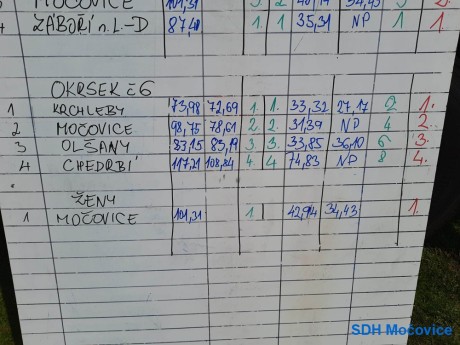 MOČOVICE 101,31 3. 2. 40,14 34,43 5 2.
4 ZÁBOŘÍ n.L-D 87,40 1. 1. 35,31 NP 1 1
OKRSEK č6
1 KRCHLEBY 73,98 72,69 1. 1. 33,32 27,17 2 1.
2 MOČOVICE 98,75 78,61 2. 2. 31,39 NP 4 2.
3 OLŠANY 83,15 83,19 3. 3. 33,85 36,10 6 3.
4 CHEDRBÍ 117,21 108,84 4. 4. 74,83 NP 8 4.
ŽENY
1 MOČOVICE 101,31 1. 42,94 34,43 1.
SDH Močovice